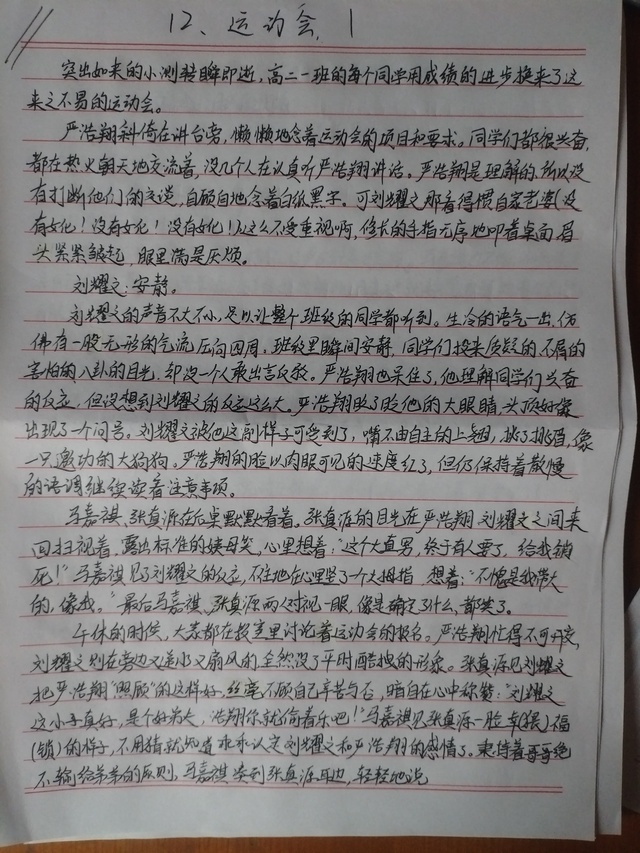 12、运动会 1
突出如来的小测转瞬即逝，高二一班的每个同学用成绩的进步换来了这
来之不易的运动会。
严浩翔斜倚在讲台旁，懒懒地念着运动会的项目和要求。同学们都很兴奋，
都在热火朝天地交流着，没几个人在认真听严浩翔讲话。严浩翔是理解的，所以没
有打断他们的交谈，自顾自地念着白纸黑字。可刘耀文那看得惯自家老婆（没
有女化！没有女化！没有女化！）这么不受重视啊，修长的手指无序地叩着桌面，眉
头紧紧皱起，眼里满是厌烦。
刘耀文：安静。
刘耀文的声音不大不小，足以让整个班级的同学都听到。生冷的语气一出，仿
佛有一股无形的气流压向四周，班级里瞬间安静，同学们投来质疑的、不屑的
害怕的八卦的目光，却没一人敢出言反驳。严浩翔也呆住了，他理解同学们兴奋
的反应，但没想到刘耀文的反应这么大。严浩翔眨了眨他的大眼睛，头顶好像
出现了一个问号。刘耀文被他这副样子可爱到了，嘴不由自主的上翘，挑了挑眉，像
一只邀功的大狗狗。严浩翔的脸以肉眼可见的速度红了，但仍保持着散慢
的语调继续读着注意事项。
马嘉祺、张真源在后桌默默看着。张真源的目光在严浩翔、刘耀文之间来
回扫视着，露出标准的姨母笑，心里想着：“这个大直男，终于有人要了，给我锁
死！”马嘉祺见了刘耀文的反应，不住地在心里竖了个大拇指，想着：“不愧是我带大
的，像我。”最后马嘉祺、张真源两人对视一眼，像是确定了什么，都笑了。
午休的时候，大家都在教室里讨论着运动会的报名。严浩翔忙得不可开交，
刘耀文则在旁边又递水又扇风的，全然没了平时酷拽的形象。张真源见刘耀文
把严浩翔“照顾”的这样好，丝毫不顾自己辛苦与否，暗自在心中称赞：“刘耀文
这小子真好，是个好男大，浩翔你就偷着乐吧！”马嘉祺见张真源一脸幸（狠）福
（锁）的样子，不用猜就知道乖乖认定刘耀文和严浩翔的感情了。秉持着哥哥绝
不输给弟弟的原则，马嘉祺凑到张真源耳边，轻轻地说